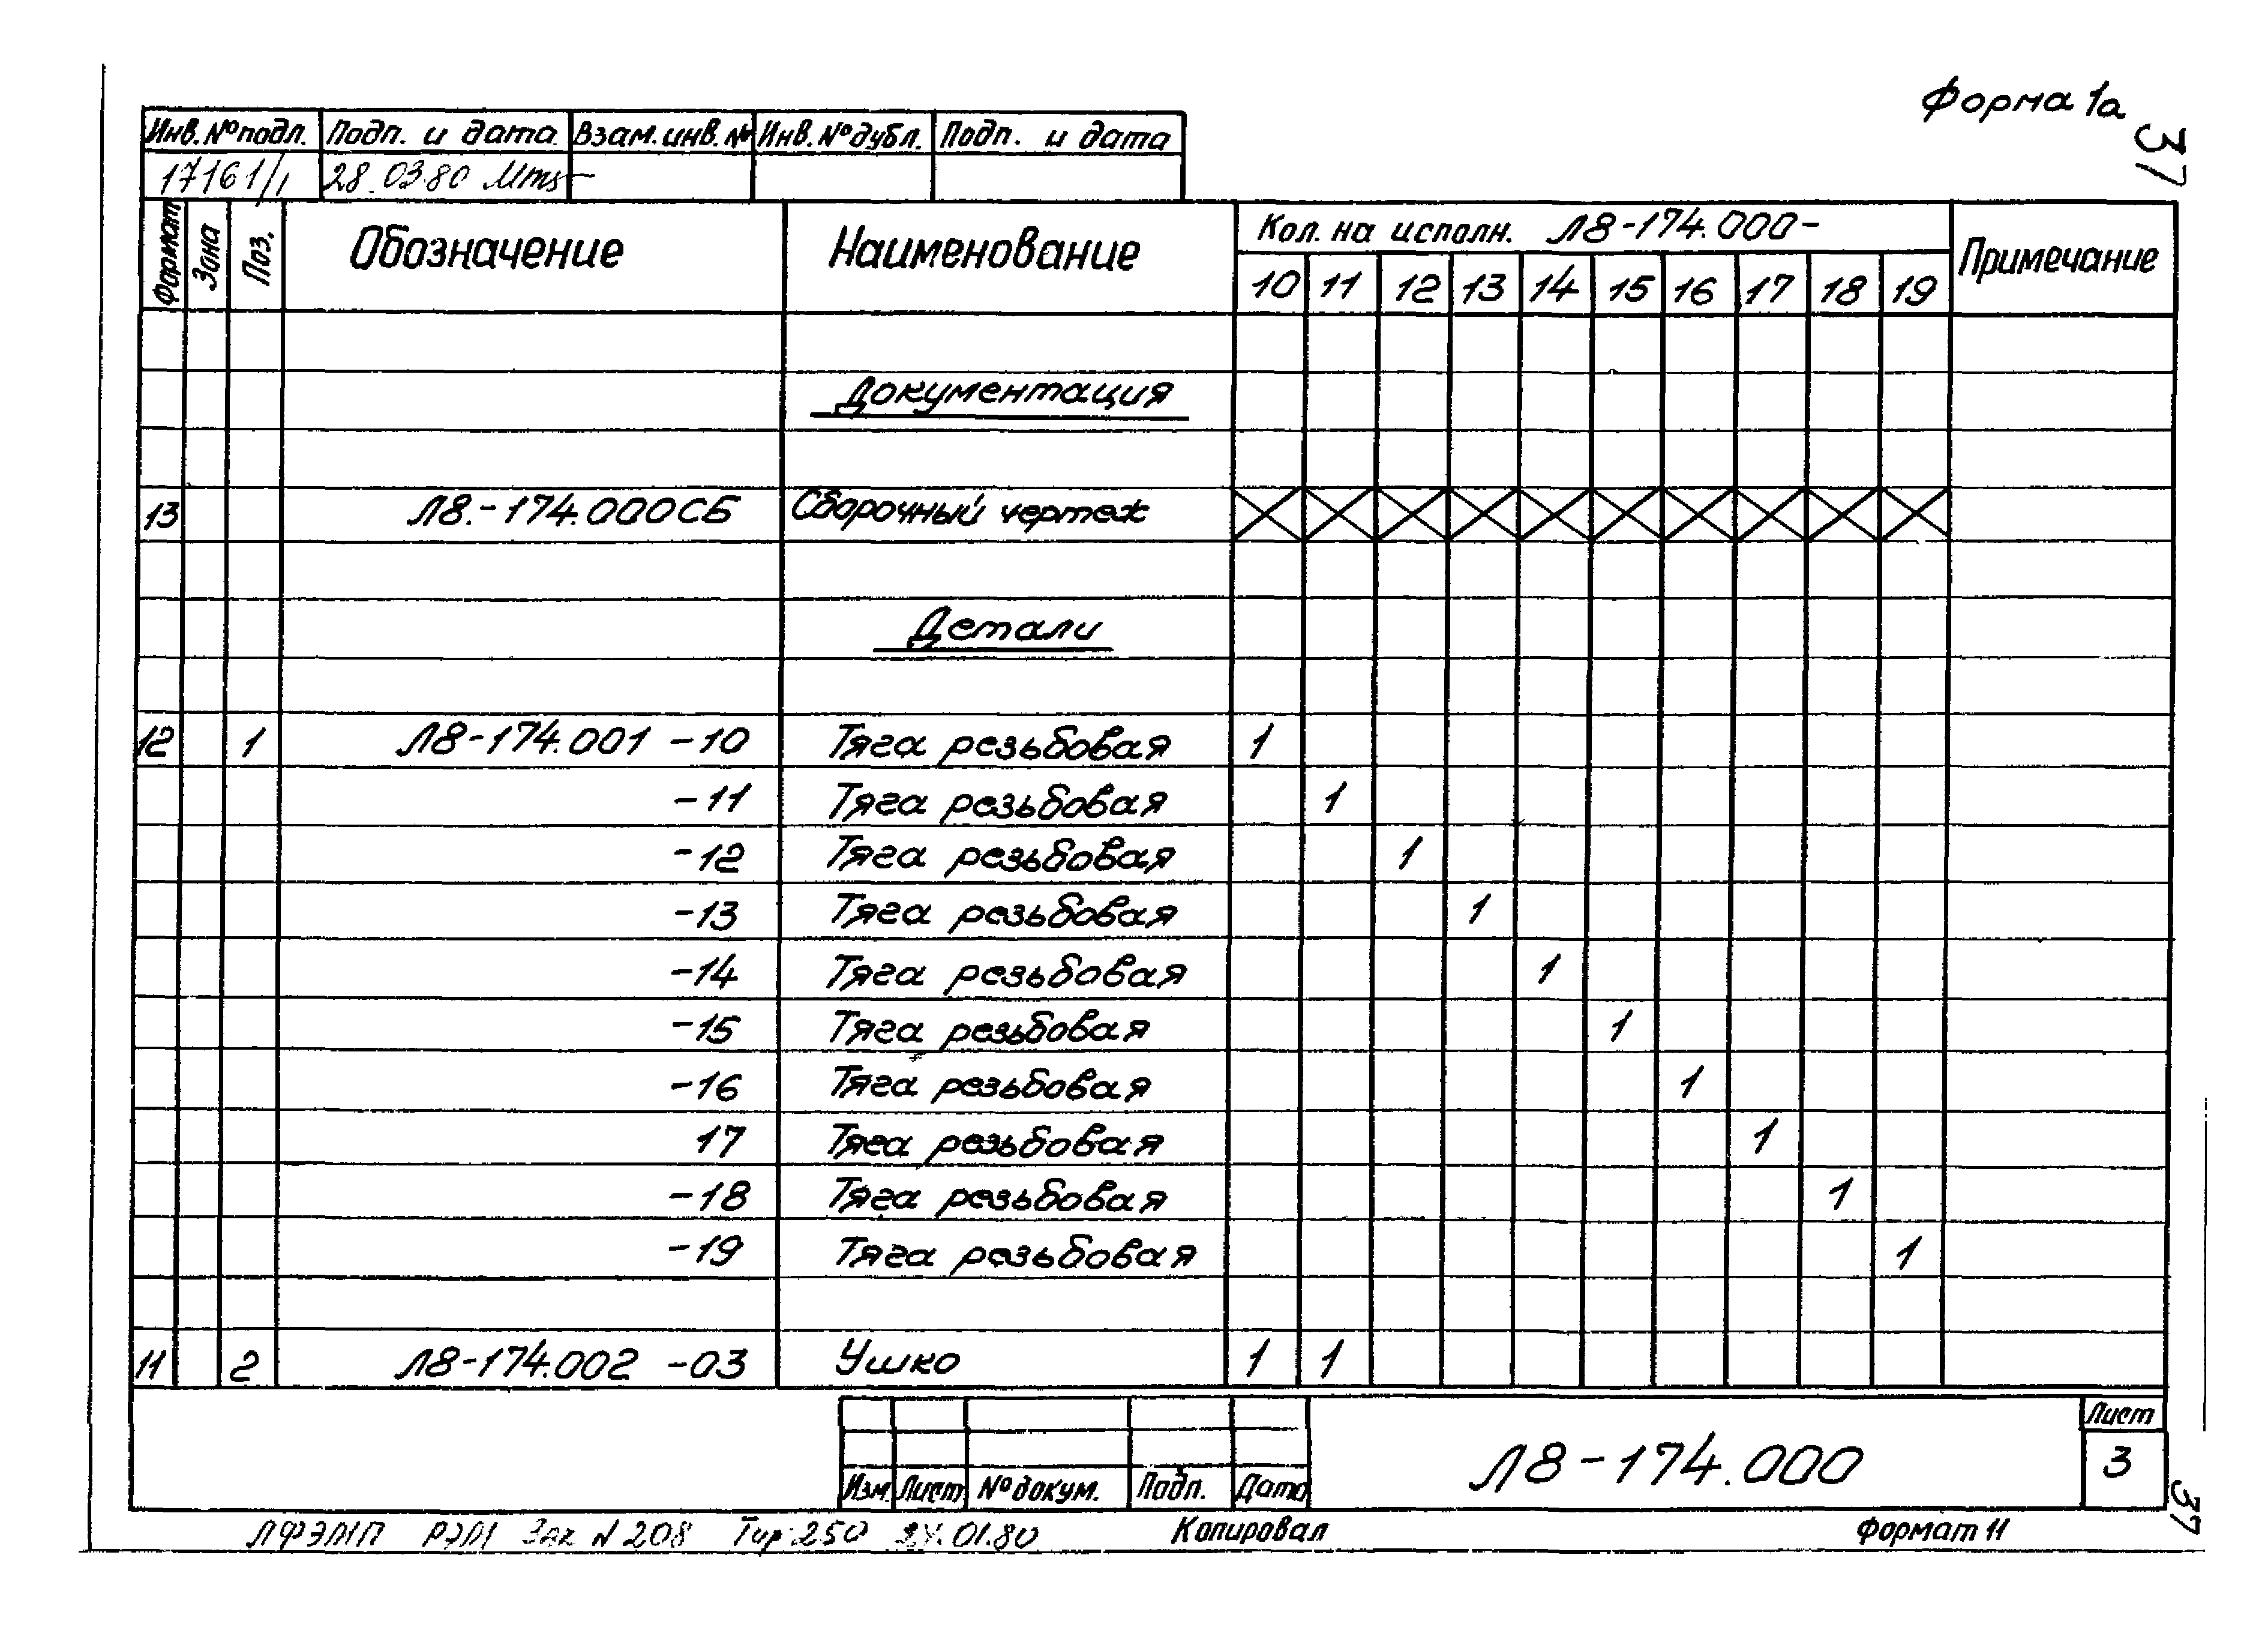 Форма 1а
37
Инв. № подл. Подп. и дата Взам. инв. № Инв. № дубл. Подп. и дата
17161/1 28.03.80
Формат Зона Поз. Обозначение Наименование Кол. на исполн. Л8-174.000- Примечание
10 11 12 13 14 15 16 17 18 19
Документация
13 Л8.-174.000СБ Сборочный чертеж
Детали
12 1 Л8-174.001 -10 Тяга резьбовая 1
-11 Тяга резьбовая 1
-12 Тяга резьбовая 1
-13 Тяга резьбовая 1
-14 Тяга резьбовая 1
-15 Тяга резьбовая 1
-16 Тяга резьбовая 1
17 Тяга резьбовая 1
-18 Тяга резьбовая 1
-19 Тяга резьбовая 1
11 2 Л8-174.002 -03 Ушко 1 1
Изм. Лист № докум. Подп. Дата Л8-174.000 Лист
3
37
РЭМ Зак N 208 Тир. 250 01.80 Копировал Формат 11